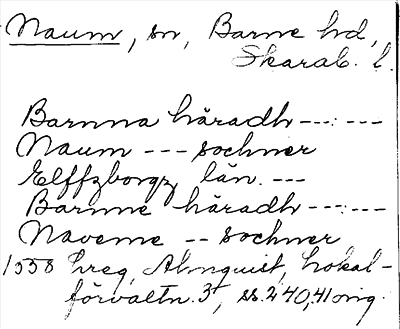 Naum, sn, Barne hd,
Skarab. l.
Barnna häradh --- : ---
Naum --- sochner
Elffzborgz län. ---
Barnne häradh --- : ---
Naveme -- sochner
1558 hreg, Almquist, Lokal-
förvaltn. 3, ss. 240, 41 orig.